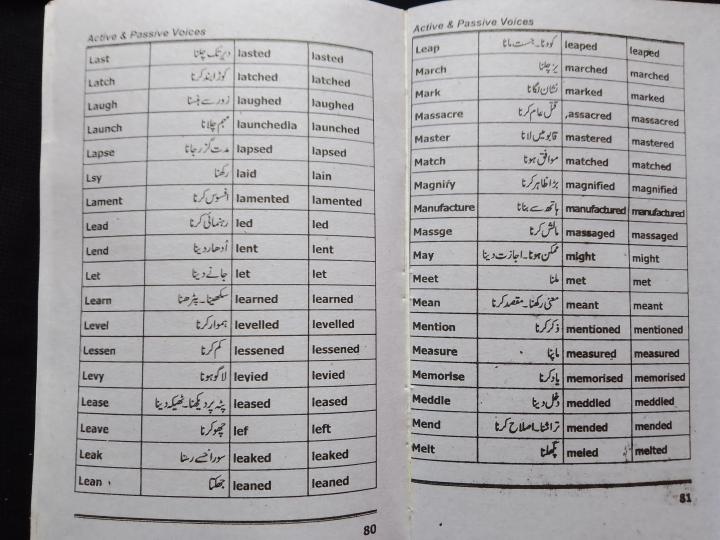 Active & Passive Voices
Last دیر تک چلنا lasted lasted
Latch کوڑا بند کرنا latched latched
Laugh زور سے ہنسنا laughed laughed
Launch مہم چلانا launchedla launched
Lapse مدت گزر جانا lapsed lapsed
Lsy رکھنا laid lain
Lament افسوس کرنا lamented lamented
Lead رہنمائی کرنا led led
Lend اُدھار دینا lent lent
Let جانے دینا let let
Learn سکھینا۔پڑھنا learned learned
Level ہموار کرنا levelled levelled
Lessen کم کرنا lessened lessened
Levy لاگو ہونا levied levied
Lease پٹہ پر دیکھنا۔ٹھیکہ دینا leased leased
Leave چھوکرنا lef left
Leak سوراخ سے رسنا leaked leaked
Lean جھکنا leaned leaned
80
Active & Passive Voices
Leap کودنا۔جست مانا leaped leaped
March چلنا marched marched
Mark نشان لگانا marked marked
Massacre قتل عام کرنا ,assacred massacred
Master قابو میں لانا mastered mastered
Match موافق ہونا matched matched
Magnify بڑا ظاہر کرنا magnified magnified
Manufacture ہاتھ سے بنانا manufactured manufactured
Massge مالش کرنا massaged massaged
May ممکن ہونا۔اجازت دینا might might
Meet ملنا met met
Mean معنی رکھنا۔مقصد کرنا meant meant
Mention ذکر کرنا mentioned mentioned
Measure ماپنا measured measured
Memorise یاد کرنا memorised memorised
Meddle دخل دینا meddled meddled
Mend تراشنا۔اصلاح کرنا mended mended
Melt پگھلنا meled melted
81